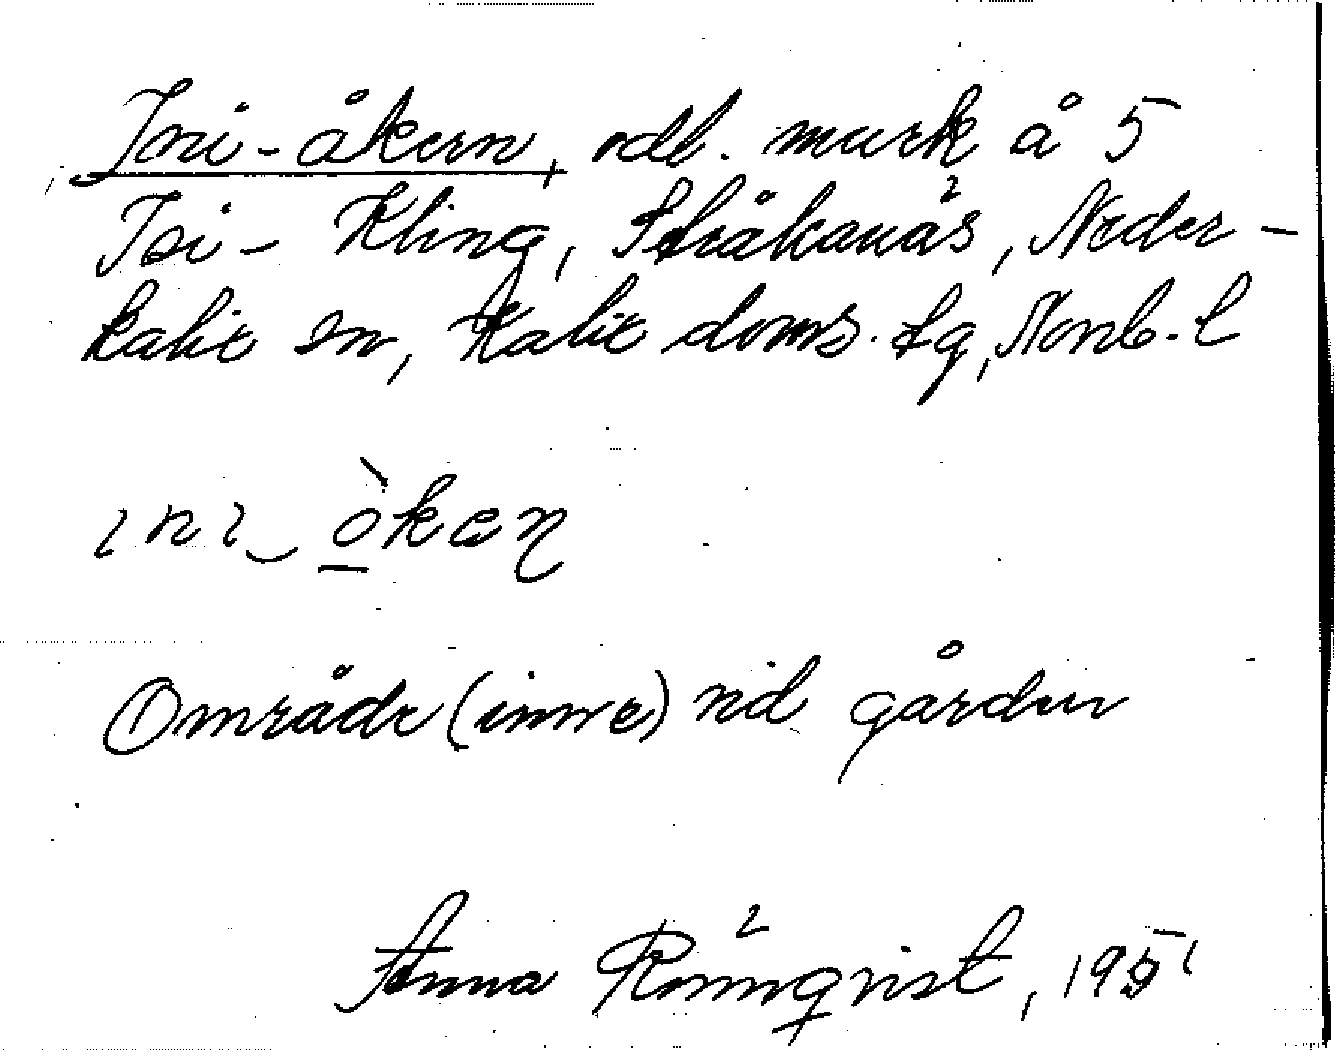 Ini-åkern, odl. mark å 5
Isi- Kling, Stråkanäs, Neder-
kalix sn, Kalix doms. fg, Norrb. l
ini_ òken
Område (inne) vid gården
Anna Rönnqvist, 1951